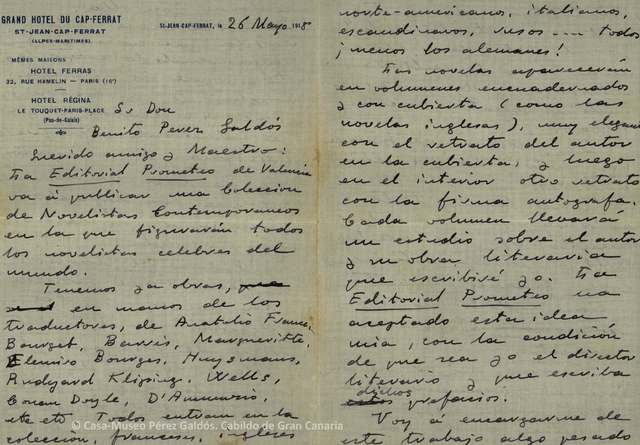 GRAND HOTEL DU CAP-FERRAT
ST-JEAN-CAP-FERRAT
(ALPES-MARITIMES)
MÊMES MAISONS
HOTEL FERRAS
32, RUE HAMELIN — PARIS (16e)
HOTEL RÉGINA
LE TOUQUET-PARIS-PLACE
(Pas-de-Calais)
ST-JEAN-CAP-FERRAT, le 26 Mayo 1918
Sr Don
Benito Perez Galdós
Querido amigo y Maestro:
La Editorial Prometeo de Valencia
va á publicar una Coleccion
de Novelistas Contemporaneos
en la que figurarán todos
los novelistas celebres del
mundo.
Tenemos ya obras,
en manos de los
traductores, de Anatolio France,
Bourget, Barrés, Margueritte,
Elemiro Bourges, Huysmans,
Rudyard Klipsing, Wells,
Conan Doyle, D'Annunzio,
etc etc Todos entran en la
coleccion, franceses, ingleses
norte-americanos, italianos,
escandinavos, rusos.... todos
¡menos los alemanes!
Las novelas aparecerán
en volumenes encuadernados
y con cubierta (como las
novelas inglesas), muy elegante
con el retrato del autor
en la cubierta, y luego
en el interior otro retrato
con la firma autografa.
Cada volumen llevará
un estudio sobre el autor
y su obra literaria
que escribiré yo. La
Editorial Prometeo ha
aceptado esta idea
mia, con la condición
de que sea yo el director
literario y que escriba
dichos
prefacios.
Voy á encargarme de
este trabajo algo pesado
© Casa-Museo Pérez Galdós. Cabildo de Gran Canaria